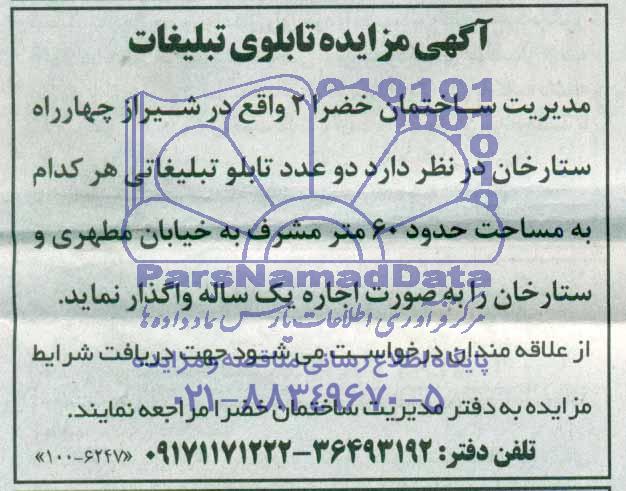 آگهی مزایده تابلوی تبلیغات
مدیریت ساختمان خضرا ۲ واقع در شیراز چهارراه
ستارخان در نظر دارد دو عدد تابلو تبلیغاتی هر کدام
به مساحت حدود ۶۰ متر مشرف به خیابان مطهری و
ستارخان را به صورت اجاره یک ساله واگذار نماید.
از علاقه مندان درخواست می شود جهت دریافت شرایط
مزایده به دفتر مدیریت ساختمان خضرا مراجعه نمایند.
تلفن دفتر: ۳۶۴۹۳۱۹۲-۰۹۱۷۱۱۷۱۲۲۲ «۱۰۰-۶۲۴۷»
ParsNamadData
مرکز فرآوری اطلاعات پارس نماد داده ها
پایگاه اطلاع رسانی مناقصه و مزایده
۰۲۱-۸۸۳۴۹۶۷۰-۵